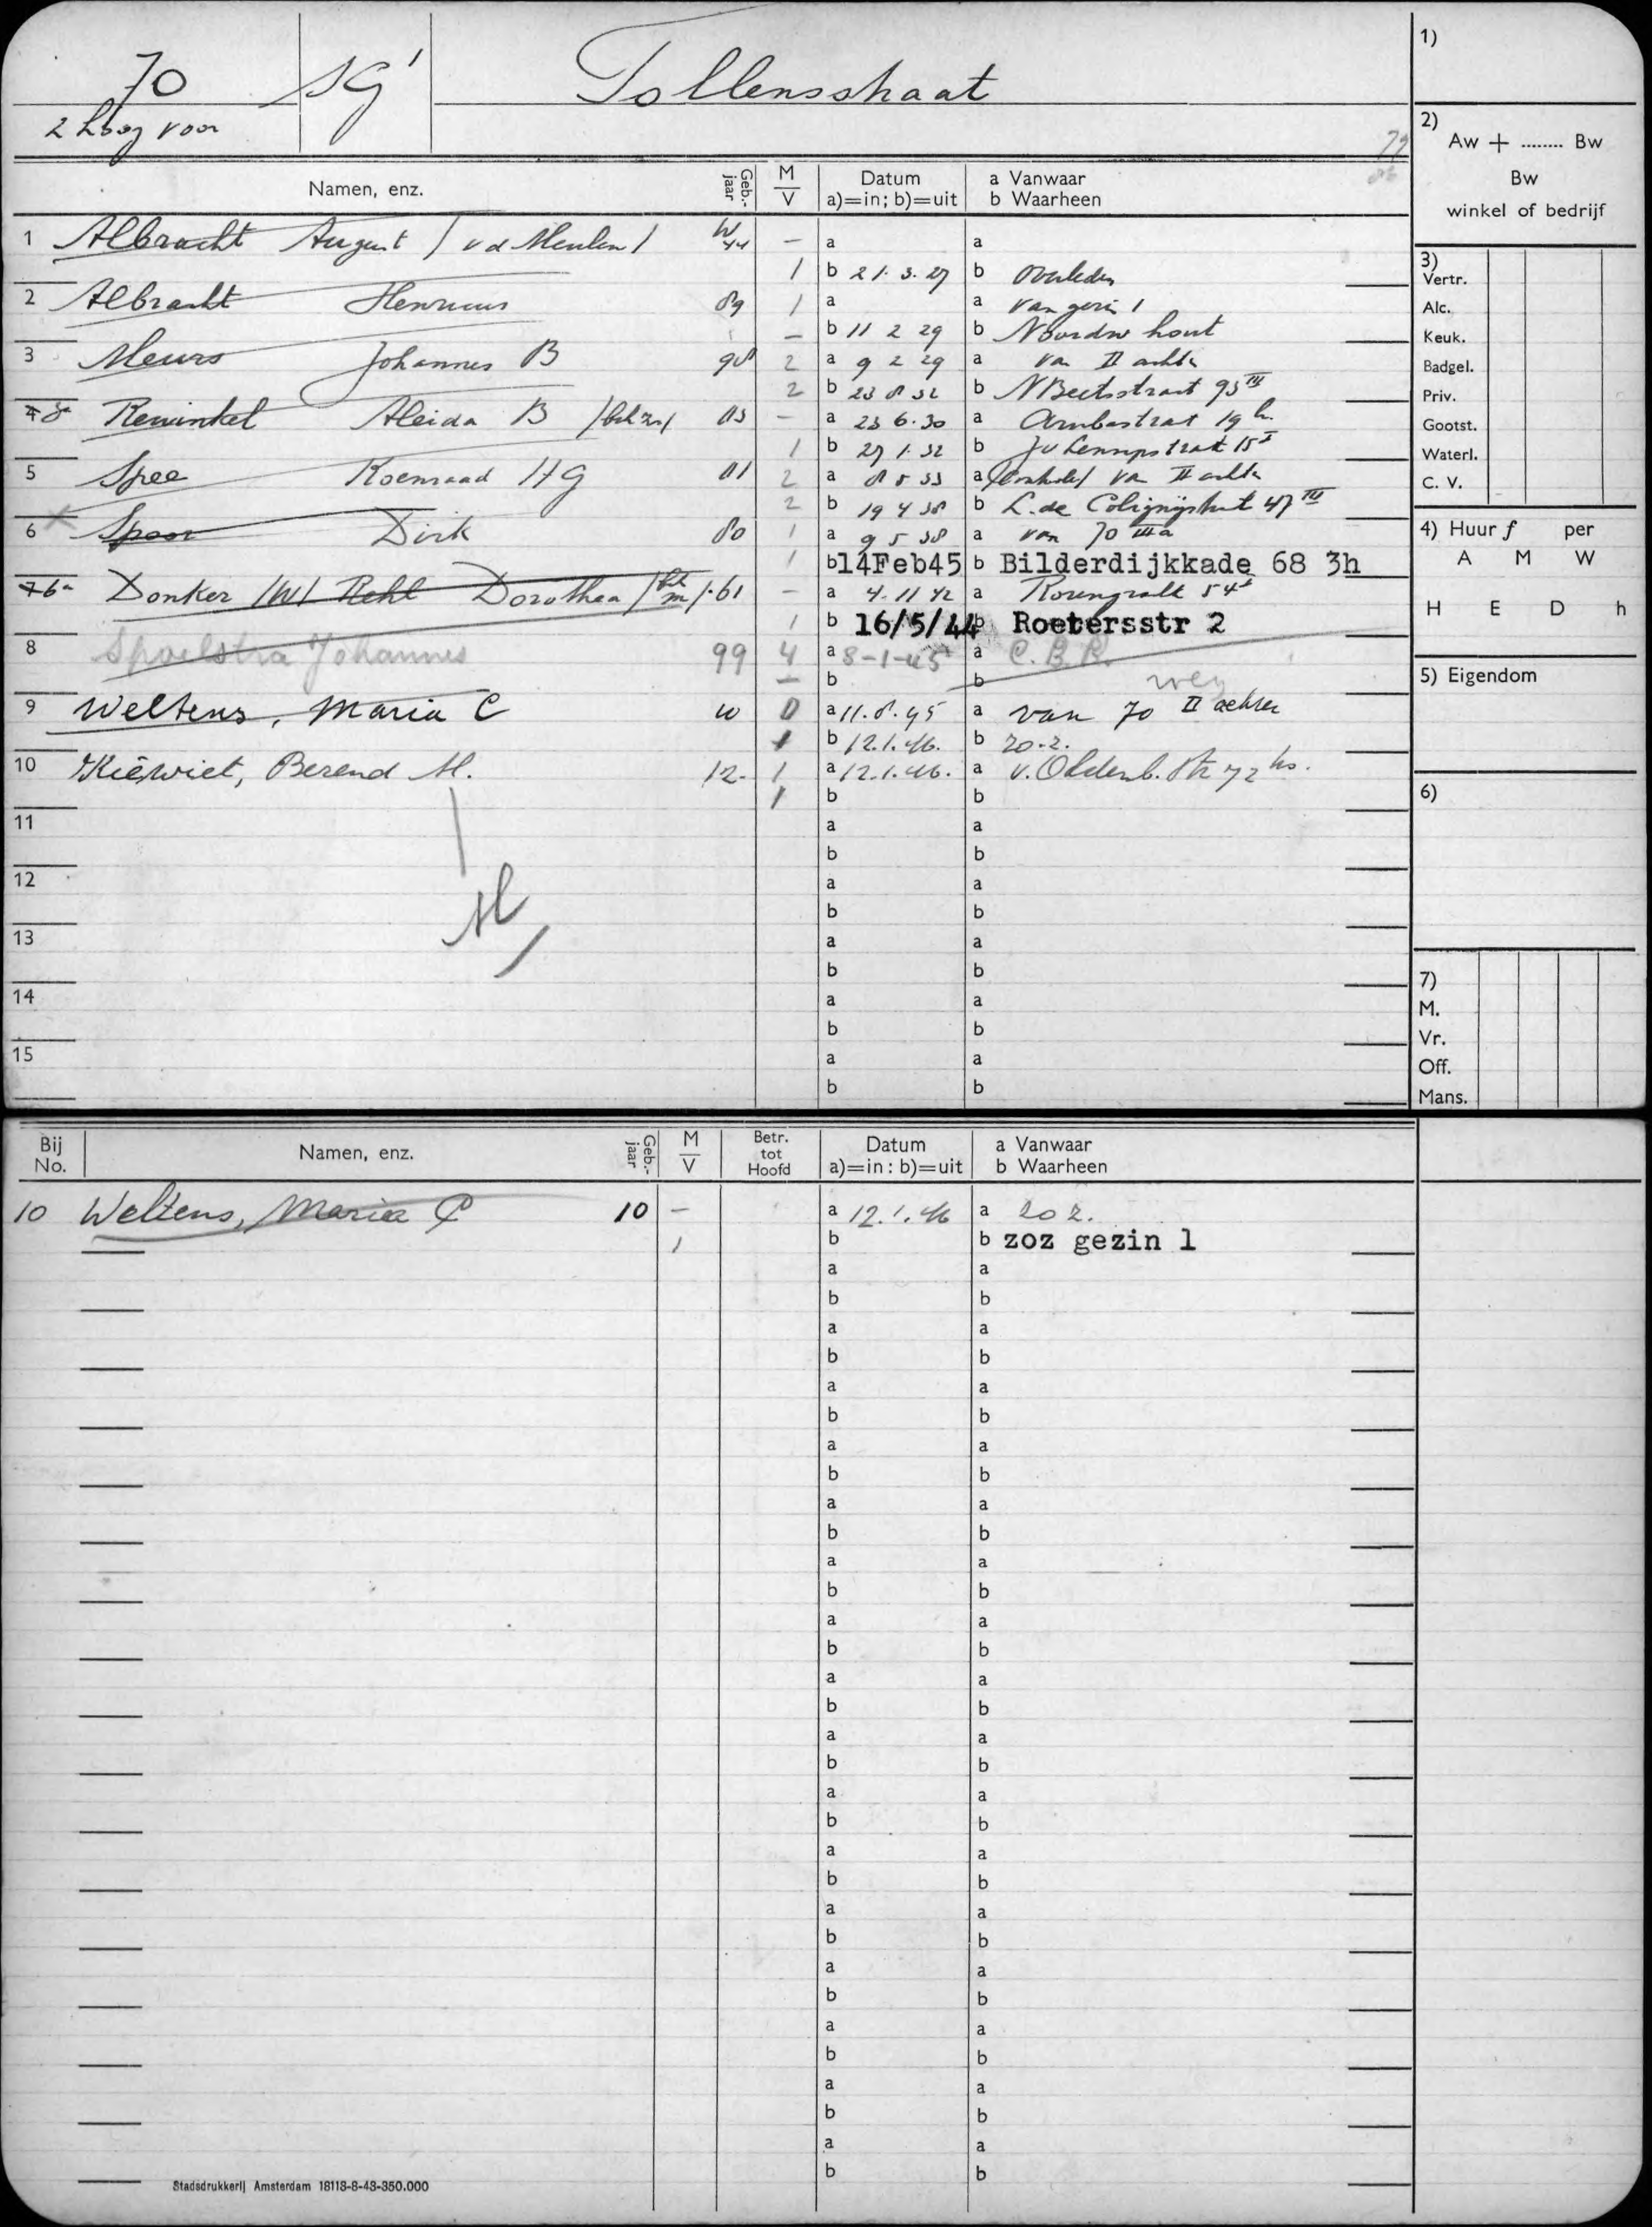 70 Tollensstraat
2 hoog voor
Namen, enz. Geb.-jaar M/V Datum a)=in; b)=uit a Vanwaar b Waarheen
1 Albracht August / v d Meulen / W 44 — a a
1 b 21.3.27 b overleden
2 Albracht Henricus 89 1 a a van gezin 1
— b 11 2 29 b Noordw hout
3 Meurs Johannes B 98 2 a 9 2 29 a van II achter
2 b 23 8 32 b NBeetsstraat 95 III
Rewinkel Aleida B 03 — a 23 6.30 a Ambonstraat 19 h.
1 b 27 1.32 b Jv Lennepstraat 15 I
5 Spee Koenraad HG 01 2 a 8 5 33 a van II achter
2 b 19 4 38 b L. de Colignijstraat 47 III
6 Spoor Dirk 80 1 a 9 5 38 a van 70 III a
1 b 14Feb45 b Bilderdijkkade 68 3h
Donker /W/ Rehl Dorothea 61 — a 4.11 42 a Rozengracht 54 I
1 b 16/5/44 b Roetersstr 2
8 Spoelstra Johannes 99 4 a 8-1-45 a C.B.R.
— b b weg
9 Weltens, Maria C 10 0 a 11.8.45 a van 70 II achter
1 b 12.1.46. b zoz.
10 Kiewiet, Berend M. 12. 1 a 12.1.46. a v. Oldenb. Str 72 hs.
1 b b
11 a a
b b
12 a a
b b
13 a a
b b
14 a a
b b
15 a a
b b
1)
2) Aw + ........ Bw
Bw
winkel of bedrijf
3)
Vertr.
Alc.
Keuk.
Badgel.
Priv.
Gootst.
Waterl.
C. V.
4) Huur f per
A M W
H E D h
5) Eigendom
6)
7)
M.
Vr.
Off.
Mans.
Bij No. Namen, enz. Geb.-jaar M/V Betr. tot Hoofd Datum a)=in : b)=uit a Vanwaar b Waarheen
10 Weltens, Maria C 10 — a 12.1.46 a zoz.
1 b b zoz gezin 1
a a
b b
a a
b b
a a
b b
a a
b b
a a
b b
a a
b b
a a
b b
a a
b b
a a
b b
a a
b b
a a
b b
a a
b b
a a
b b
a a
b b
a a
b b
a a
b b
Stadsdrukkerij Amsterdam 18113-8-43-350.000